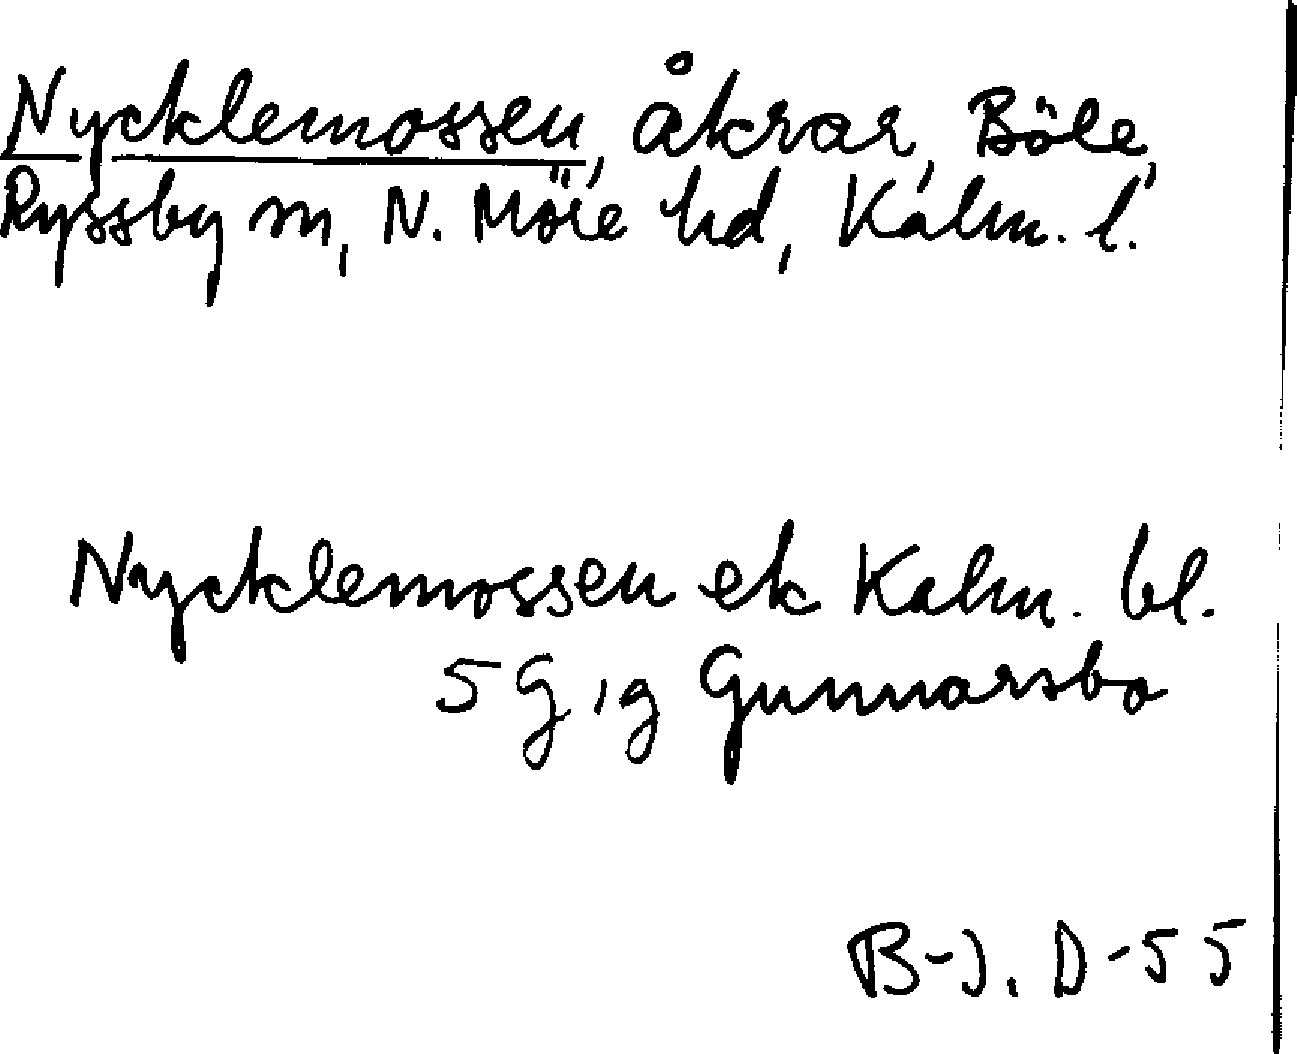 Nycklemossen, åkrar, Böle,
Ryssby sn, N. Möre hd, Kalm. l.
Nycklemossen ek Kalm. bl.
5 G, g Gunnarsbo
B-J. D-55